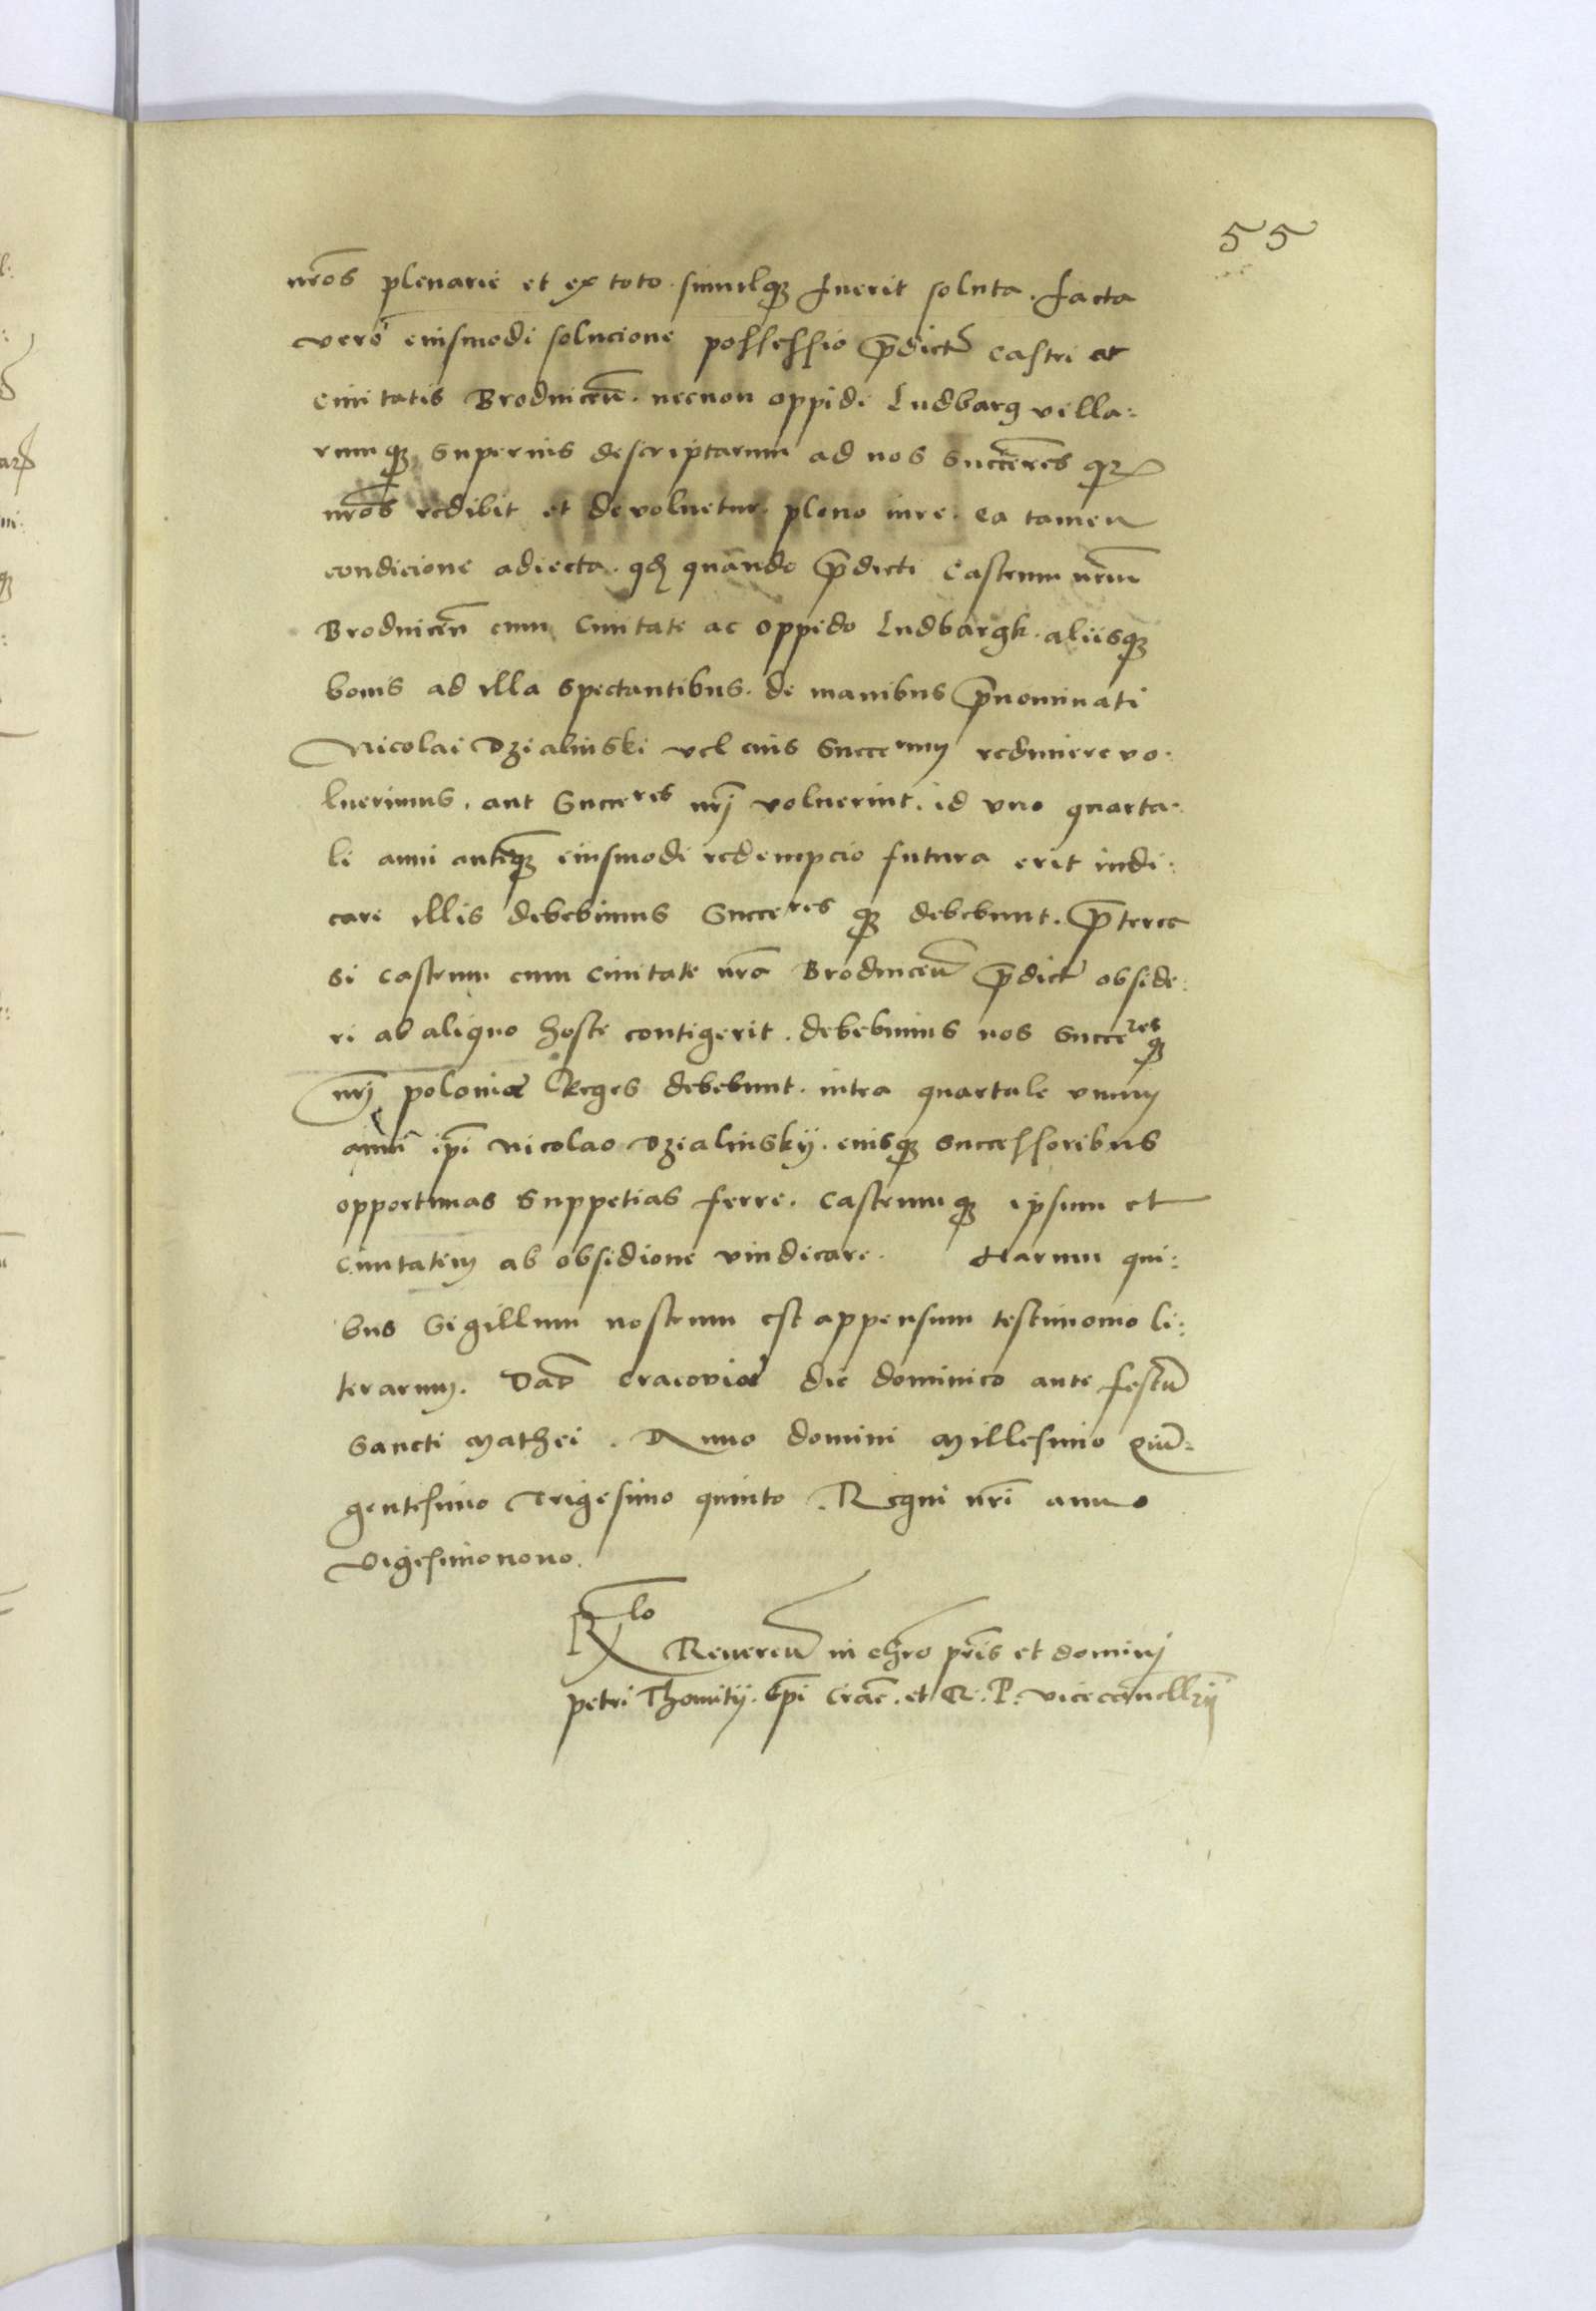 55
nr̃os plenarie et ex toto simulq₃ fuerit soluta. facta
vero eiusmodi solucione possessio p̃dict̃ castri et
civitatis Brodnicẽn. necnon oppidi Ludbarg villa:
rumq₃ superius descriptarum ad nos succer̃es q₃
nr̃os redibit et devoluetur. pleno iure. ea tamen
condicione adiecta. qđ quando p̃dicti castrum nr̃um
Brodnicen̄ cum Civitate ac oppido Ludbargk. aliisq₃
bonis ad illa spectantibus. de manibus p̃nominati
Nicolai Dzialinski vel eius Succerum redimere vo:
luerimus. aut Succeres nr̃j voluerint. id vno quarta:
li anni anteq₃ eiusmodi redempcio futura erit indi:
care illis debebimus Succeres q₃ debebunt. p̃terea
si castrum cum civitate nr̃a Brodnicen̄ p̃dict̃ obside:
ri ab aliquo hoste contigerit. debebimus nos Succeres q₃
nr̃j poloniæ Reges debebunt. intra quartale vnum
anni ip̃i Nicolao Dzialinskij. eiusq₃ successoribus
opportunas suppetias ferre. castrumq₃ ipsum et
Civitatem ab obsidione vindicare. Harum qui:
bus Sigillum nostrum est appensum testimonio li:
terarum. Dat̃ Cracoviæ die dominico ante festũ
Sancti Mathei. Anno domini Millesimo Quin̄:
gentesimo Trigesimo quinto. Regni nr̃i anno
vigesimonono.
Rlo Reveren̄ in chr̃o pr̃is et dominj
petri Thomitij. Ep̃i Crac̃. et R. P. vicecancllrij